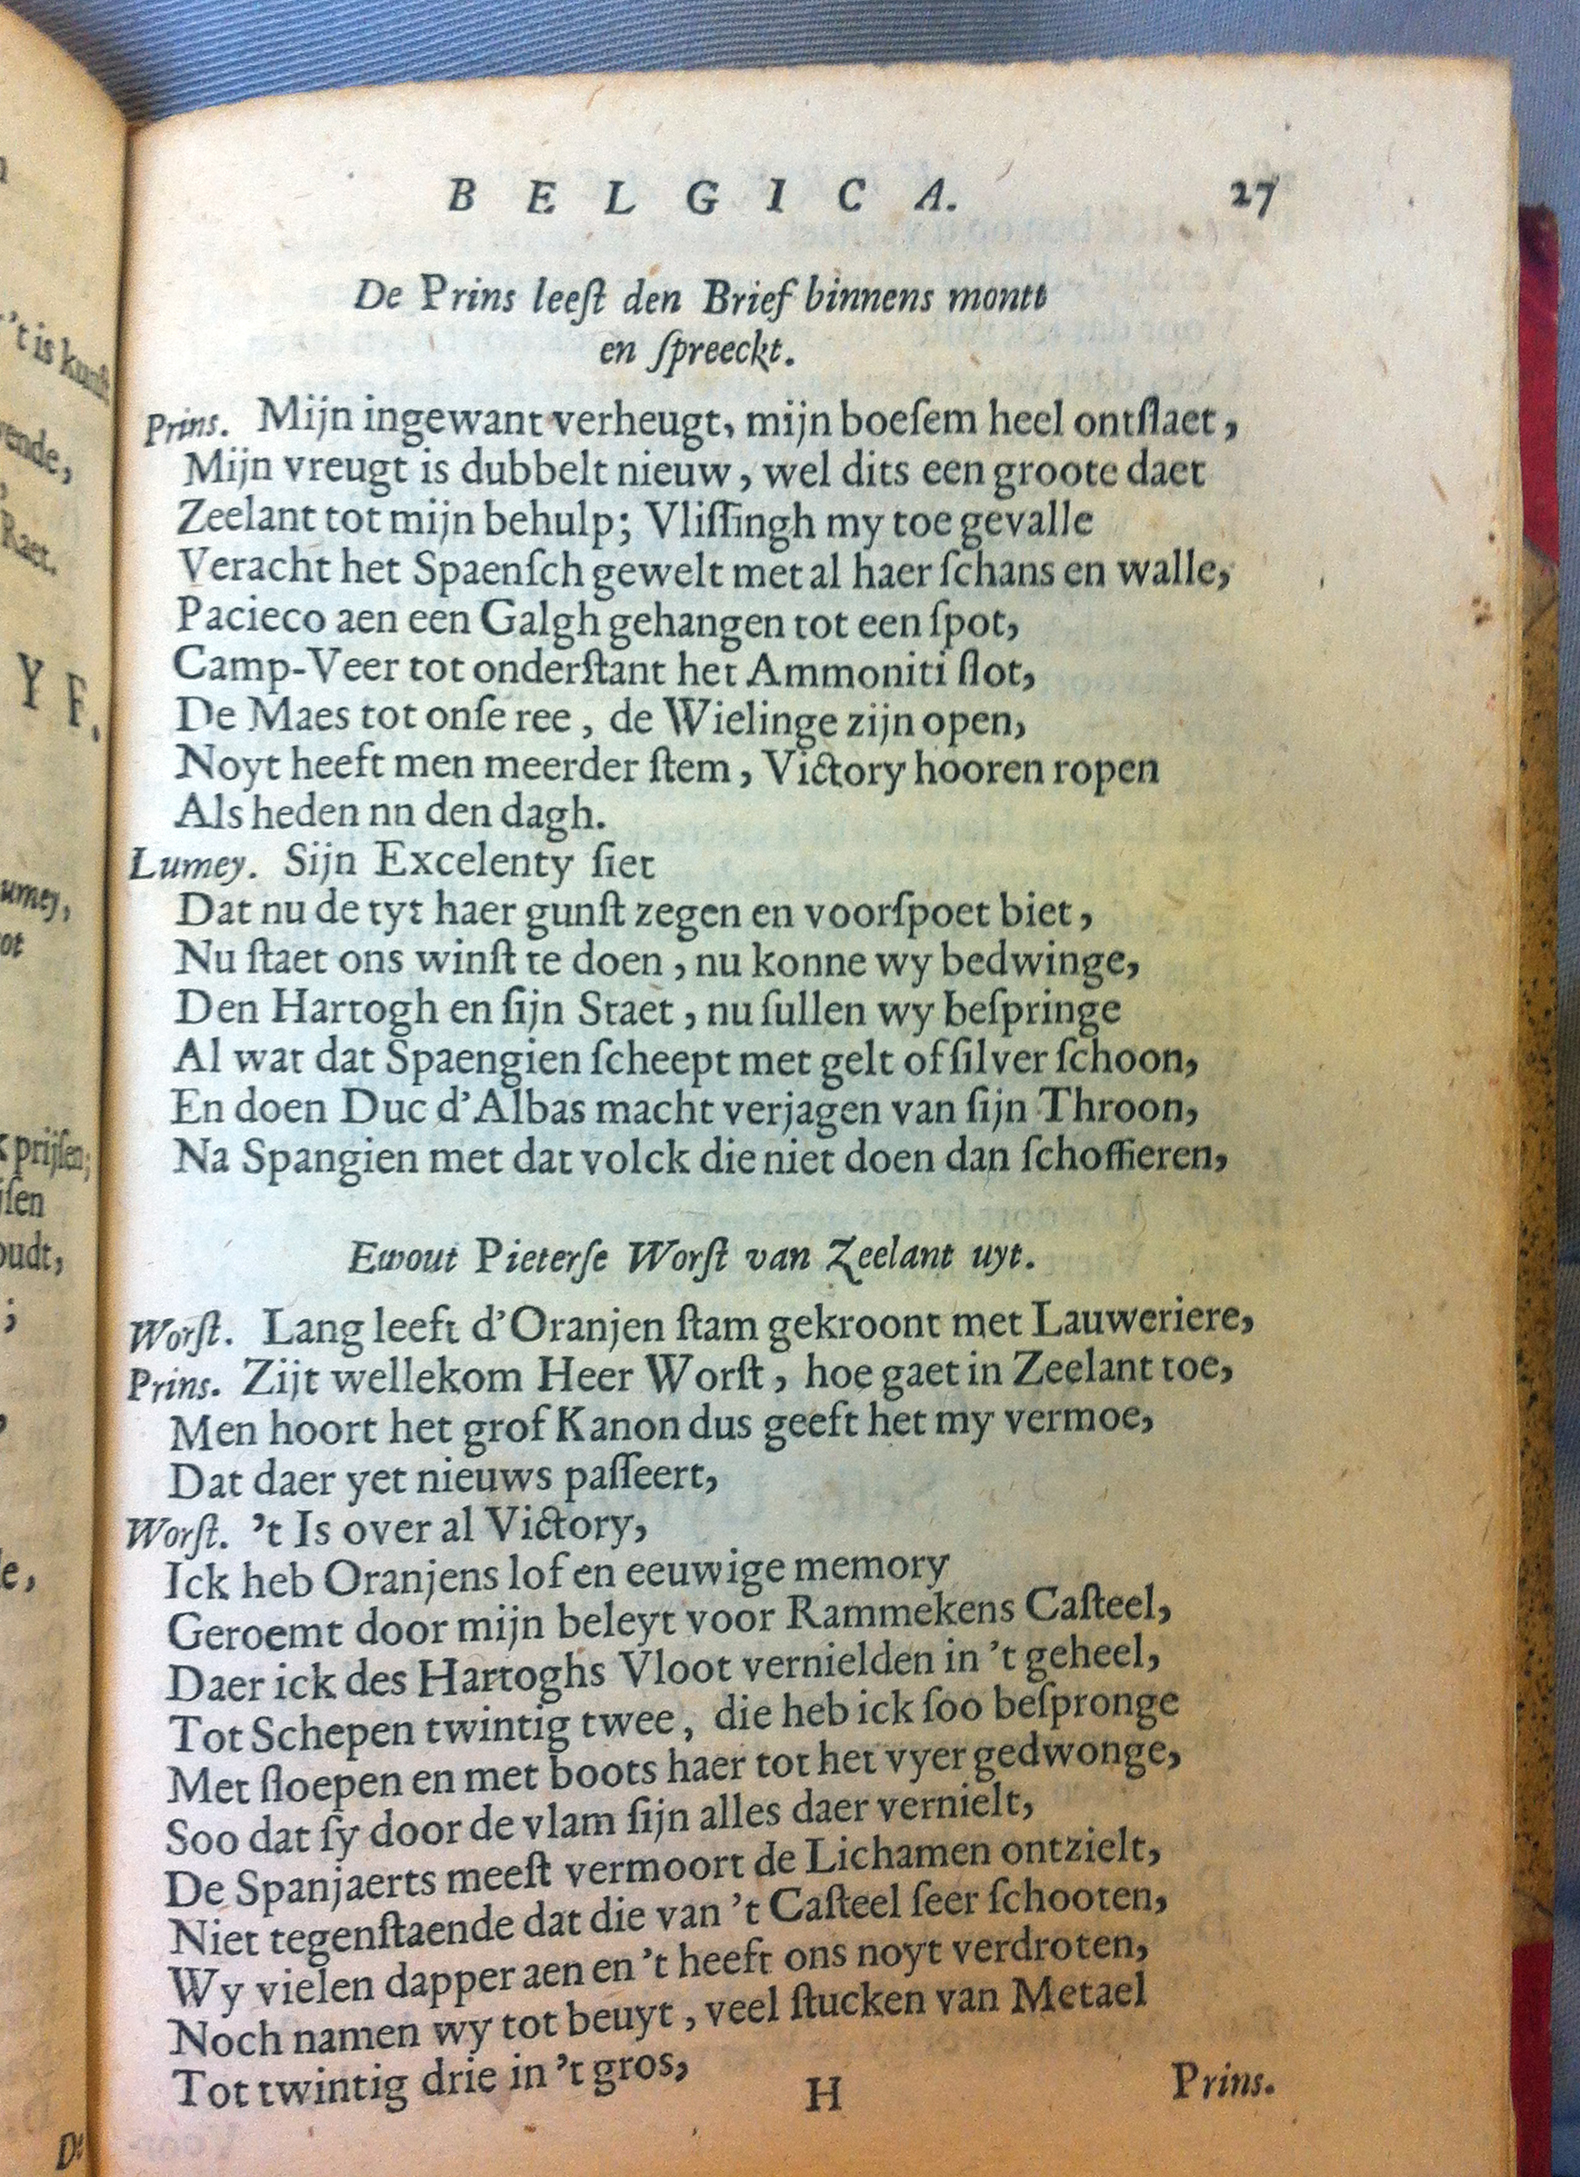 BELGICA. 27
De Prins leeſt den Brief binnens montt
en ſpreeckt.
Prins. Mijn ingewant verheugt, mijn boeſem heel ontſlaet,
Mijn vreugt is dubbelt nieuw, wel dits een groote daet
Zeelant tot mijn behulp; Vliſſingh my toe gevalle
Veracht het Spaenſch gewelt met al haer ſchans en walle,
Pacieco aen een Galgh gehangen tot een ſpot,
Camp-Veer tot onderſtant het Ammoniti ſlot,
De Maes tot onſe ree, de Wielinge zijn open,
Noyt heeft men meerder ſtem, Victory hooren ropen
Als heden nn den dagh.
Lumey. Sijn Excelenty ſiet
Dat nu de tyt haer gunſt zegen en voorſpoet biet,
Nu ſtaet ons winſt te doen, nu konne wy bedwinge,
Den Hartogh en ſijn Staet, nu ſullen wy beſpringe
Al wat dat Spaengien ſcheept met gelt of ſilver ſchoon,
En doen Duc d'Albas macht verjagen van ſijn Throon,
Na Spangien met dat volck die niet doen dan ſchoffieren,
Ewout Pieterſe Worſt van Zeelant uyt.
Worſt. Lang leeft d'Oranjen ſtam gekroont met Lauweriere,
Prins. Zijt wellekom Heer Worſt, hoe gaet in Zeelant toe,
Men hoort het grof Kanon dus geeft het my vermoe,
Dat daer yet nieuws paſſeert,
Worſt. 't Is over al Victory,
Ick heb Oranjens lof en eeuwige memory
Geroemt door mijn beleyt voor Rammekens Caſteel,
Daer ick des Hartoghs Vloot vernielden in 't geheel,
Tot Schepen twintig twee, die heb ick ſoo beſpronge
Met ſloepen en met boots haer tot het vyer gedwonge,
Soo dat ſy door de vlam ſijn alles daer vernielt,
De Spanjaerts meeſt vermoort de Lichamen ontzielt,
Niet tegenſtaende dat die van 't Caſteel ſeer ſchooten,
Wy vielen dapper aen en 't heeft ons noyt verdroten,
Noch namen wy tot beuyt, veel ſtucken van Metael
Tot twintig drie in 't gros,
H Prins.
't is kunſt
Raet.
Y F.
umey,
prijſen;
oudt,